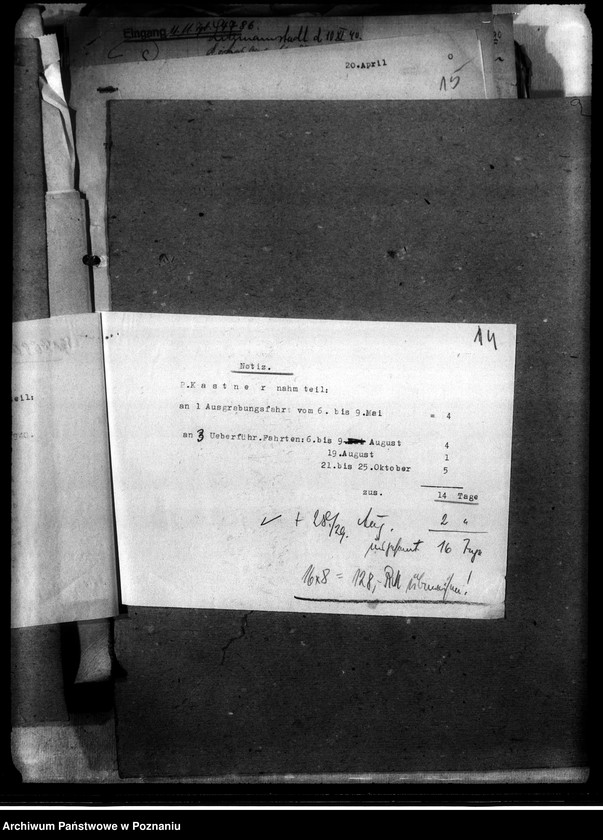 Eingang
d 10 XI 40.
20.April
0
15
14
Notiz.
P.K a s t n e r nahm teil:
an 1 Ausgrabungsfahrt vom 6. bis 9.Mai = 4
an 3 Ueberführ.Fahrten: 6.bis 9. August 4
19.August 1
21.bis 25.Oktober 5
zus. 14 Tage
✓ + 28./29. Aug. 2 "
insgesamt 16 Tage
16x8 = 128,- RM überweisen!
eil:
Archiwum Państwowe w Poznaniu